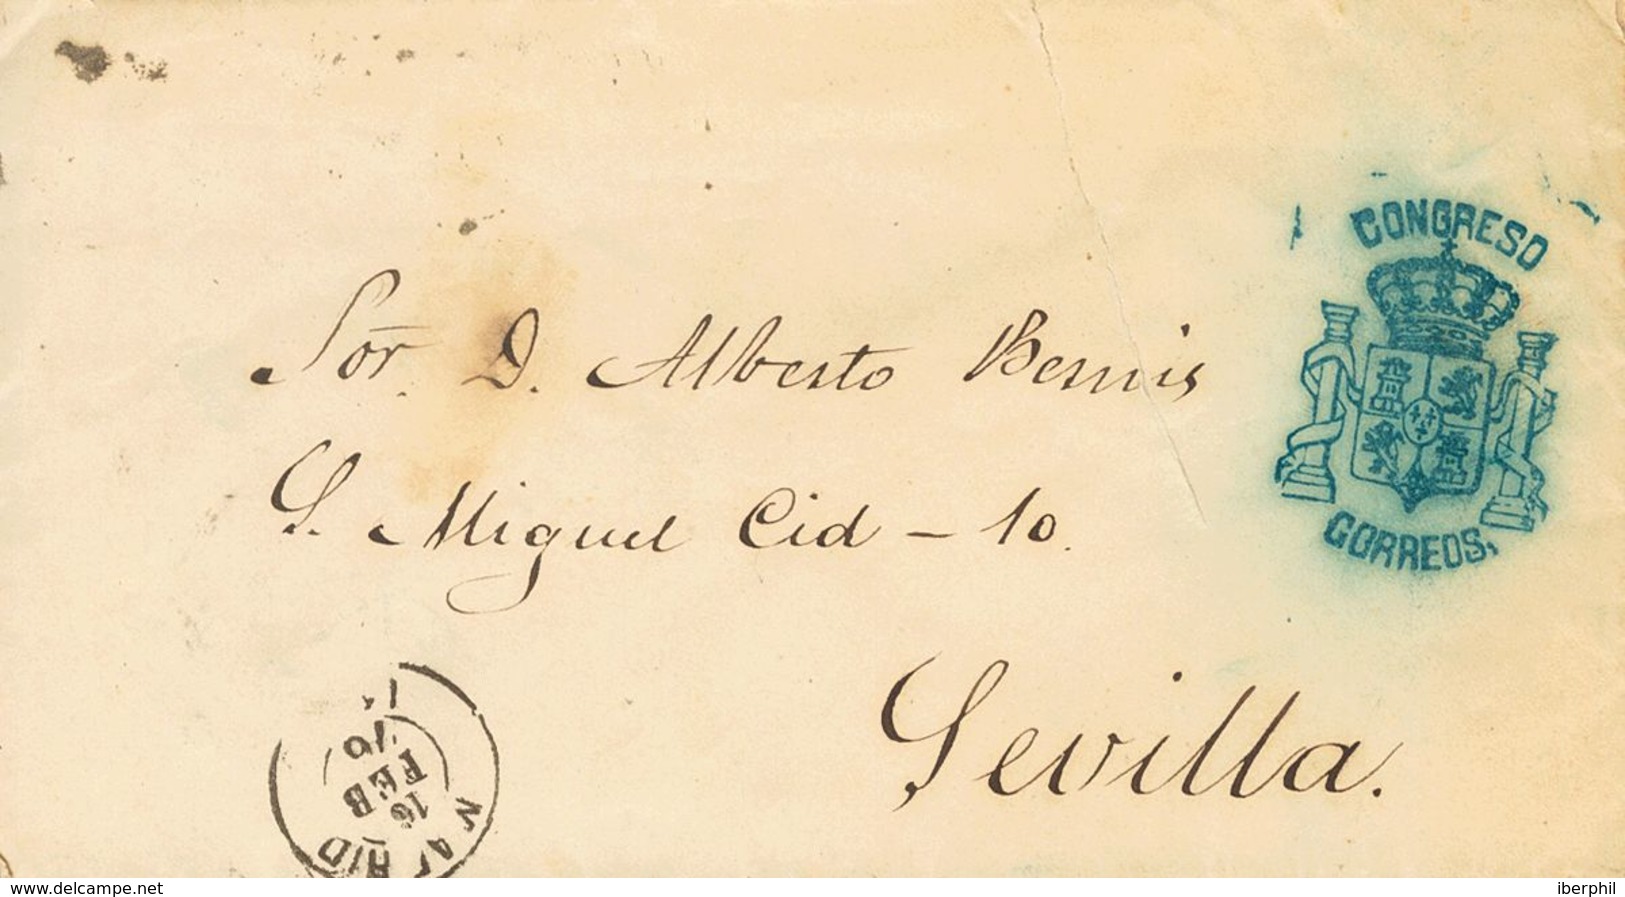 CONGRESO
CORREOS.
Sor. D. Alberto Bernis
S. Miguel Cid - 10.
Sevilla.
16
FEB
76
www.delcampe.net
iberphil